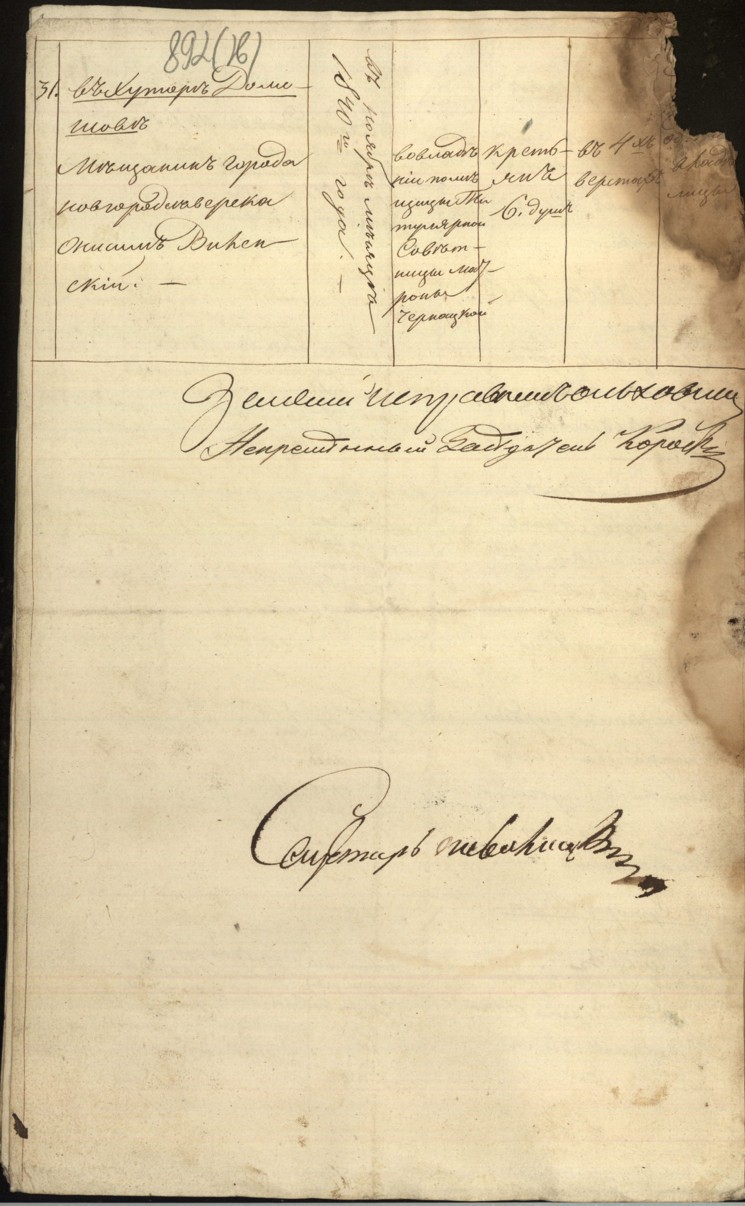 892(16)
31.
въ Хуторѣ Доме-
шовѣ
Мѣщанинъ города
новгородсѣверска
Онисимъ
скій. —
въ ноябрѣ мѣсяцѣ
1840го года. —
во владѣ
ніи помѣ
щицы Ти
тулярной
Совѣт-
ницы Мат-
роны
Чернацкой
кресть-
янъ
6. душъ
въ 4хъ
верстахъ
лицы
Земскій исправникъ
Непремѣнный Засѣдатель
Секретарь